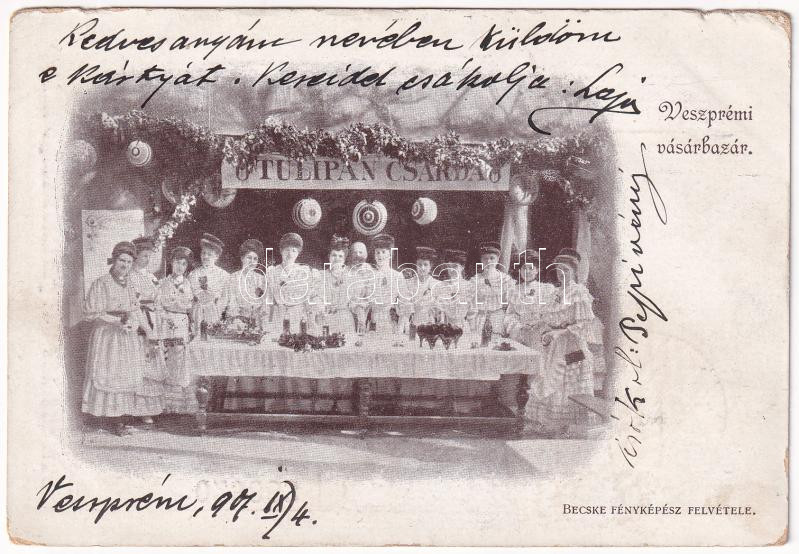 Kedvesanyám nevében küldöm
e kártyát. Kezeidd csókolja:
Veszprémi
vásárbazár.
TULIPÁN CSÁRDA
darabanth
csókol: Pepi néni
Veszprém, 907. IX/4.
BECSKE FÉNYKÉPÉSZ FELVÉTELE.